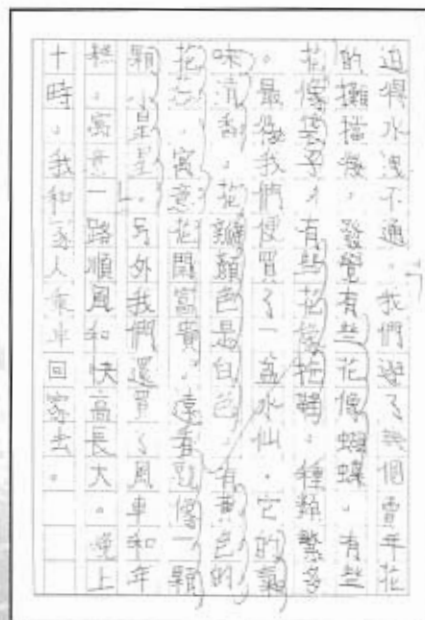 迫得水洩不通。我們逛了幾個賣年花
的攤擋後,發覺有些花像蝴蝶,有些
花像葉子,有些花像拖鞋,種類繁多
。最後我們便買了一盆水仙,它的氣
味清香,花瓣顏色是白色,有黃色的
花芯,寓意花開富貴,遠看似像一顆
顆小星星。另外我們還買了風車和年
糕,寓意一路順風和快高長大。晚上
十時,我和家人乘車回家去。